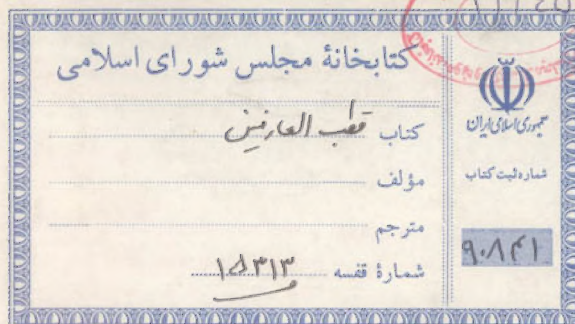 کتابخانهٔ مجلس شورای اسلامی
کتاب قطب العارفین
مؤلف
مترجم
شمارهٔ قفسه ۱۵۳۱۳
جمهوری اسلامی ایران
شماره ثبت کتاب
۹۰۸۴۱